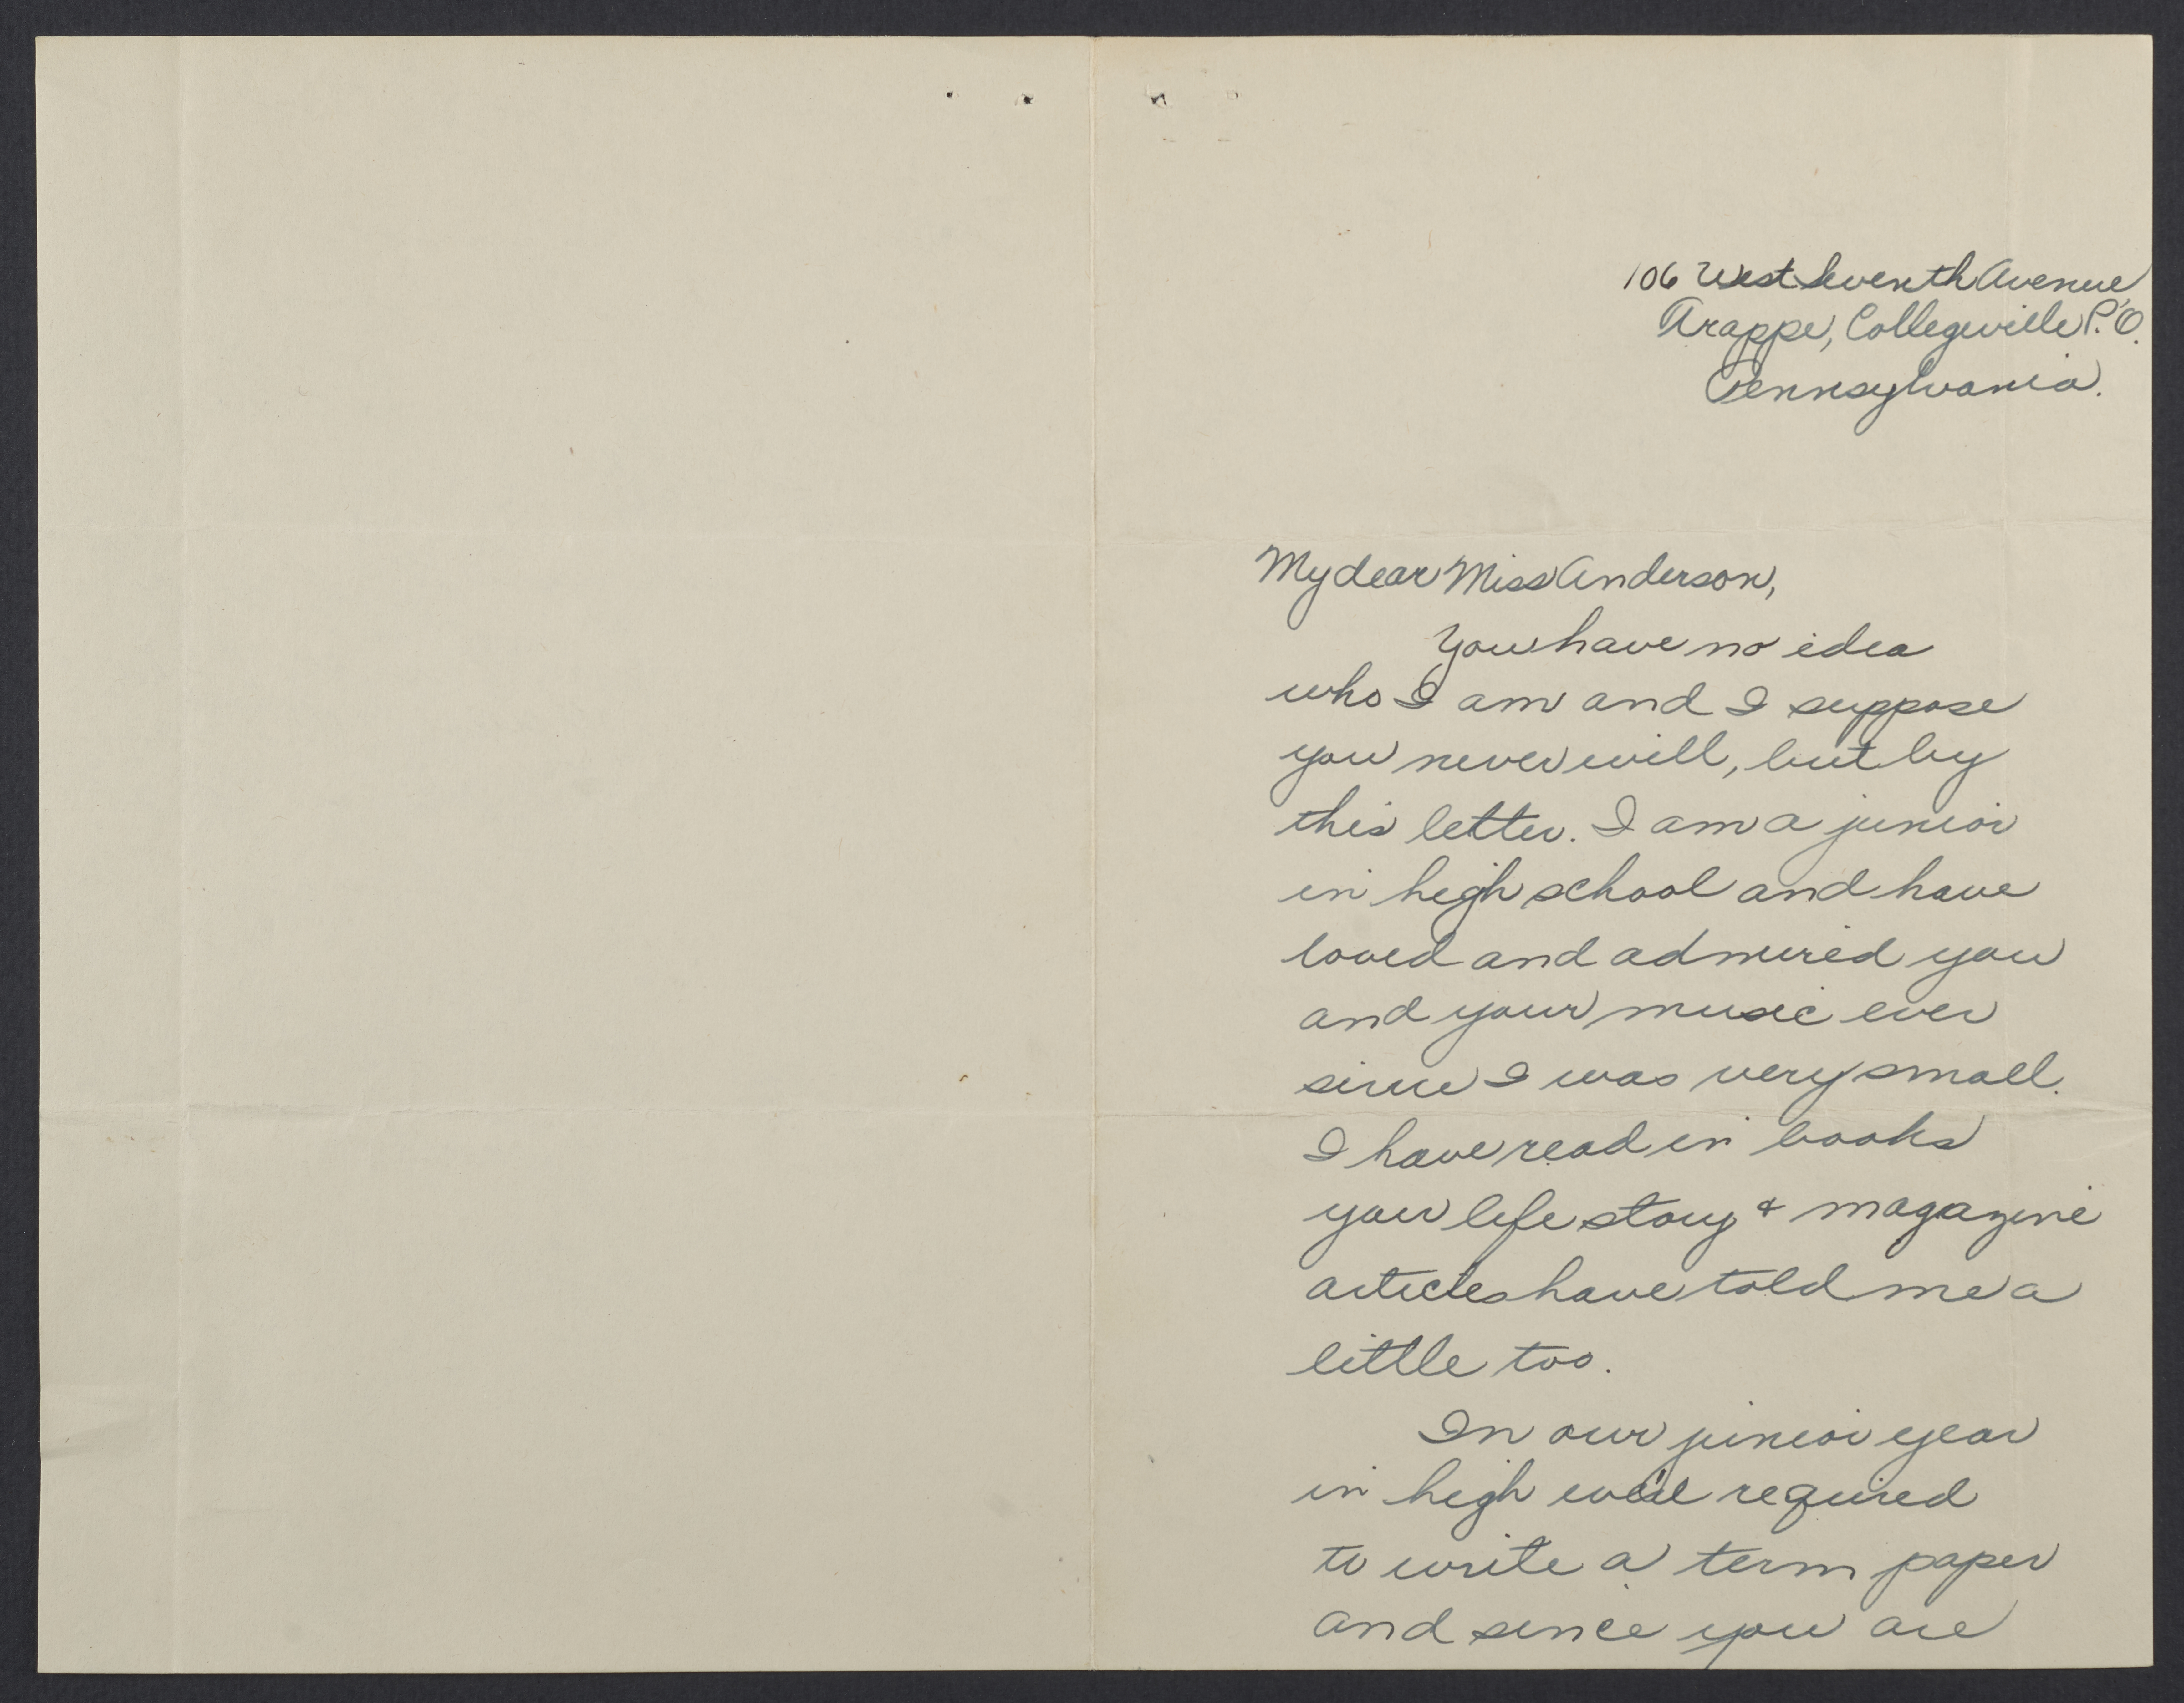 106 West Seventh Avenue
Trappe, Collegeville P.O.
Pennsylvania.
My dear Miss Anderson,
You have no idea
who I am and I suppose
you never will, but by
this letter. I am a junior
in high school and have
loved and admired you
and your music ever
since I was very small.
I have read in books
your life story & magazine
articles have told me a
little too.
In our junior year
in high we're required
to write a term paper
and since you are